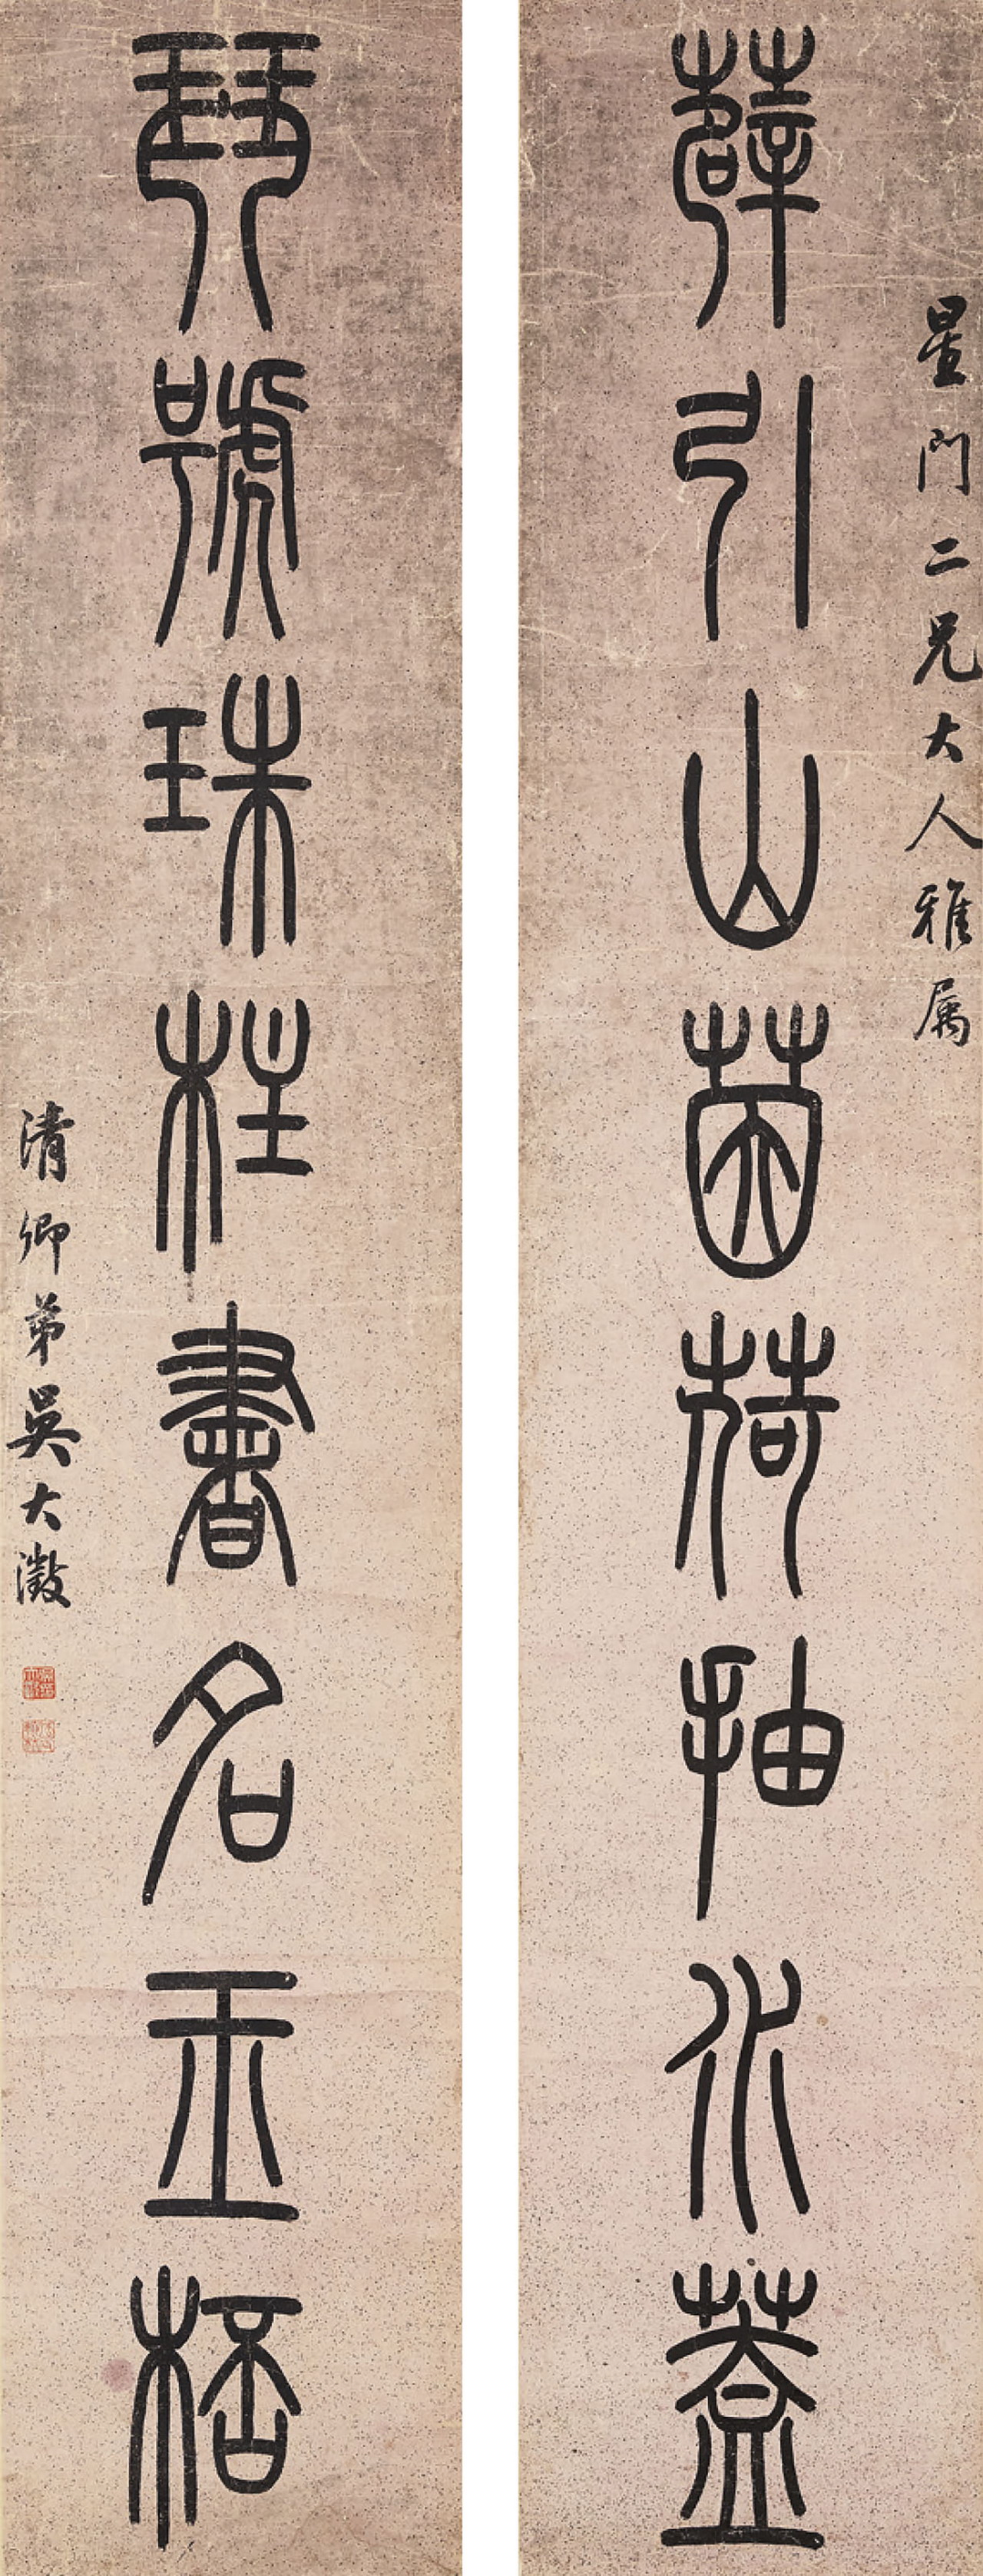 星門二兄大人雅属
薜引山茵荷抽水蓋
琴號珠柱書名玉桮
清卿弟吳大澂